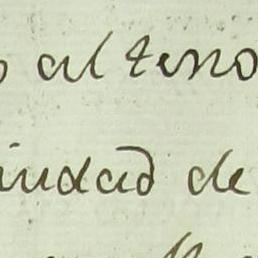 al teno
iudad de